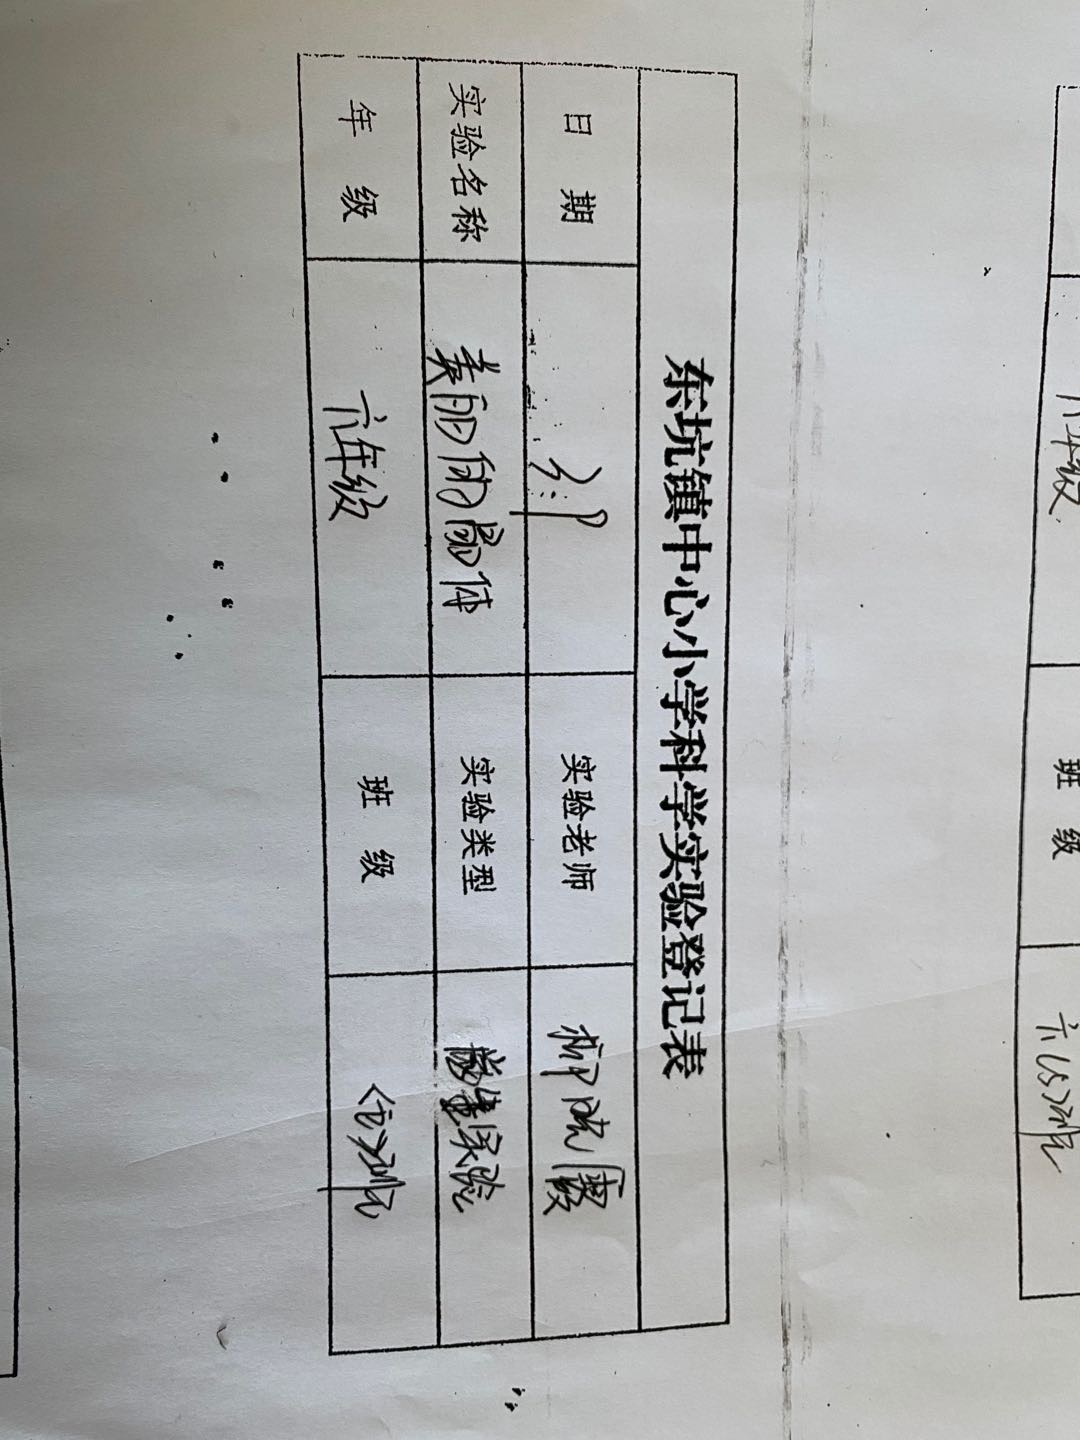 东坑镇中心小学科学实验登记表
日 期 实验老师 柳晓霞
实验名称 美丽的晶体 实验类型 学生实验
年 级 六年级 班 级
六年级 班 级